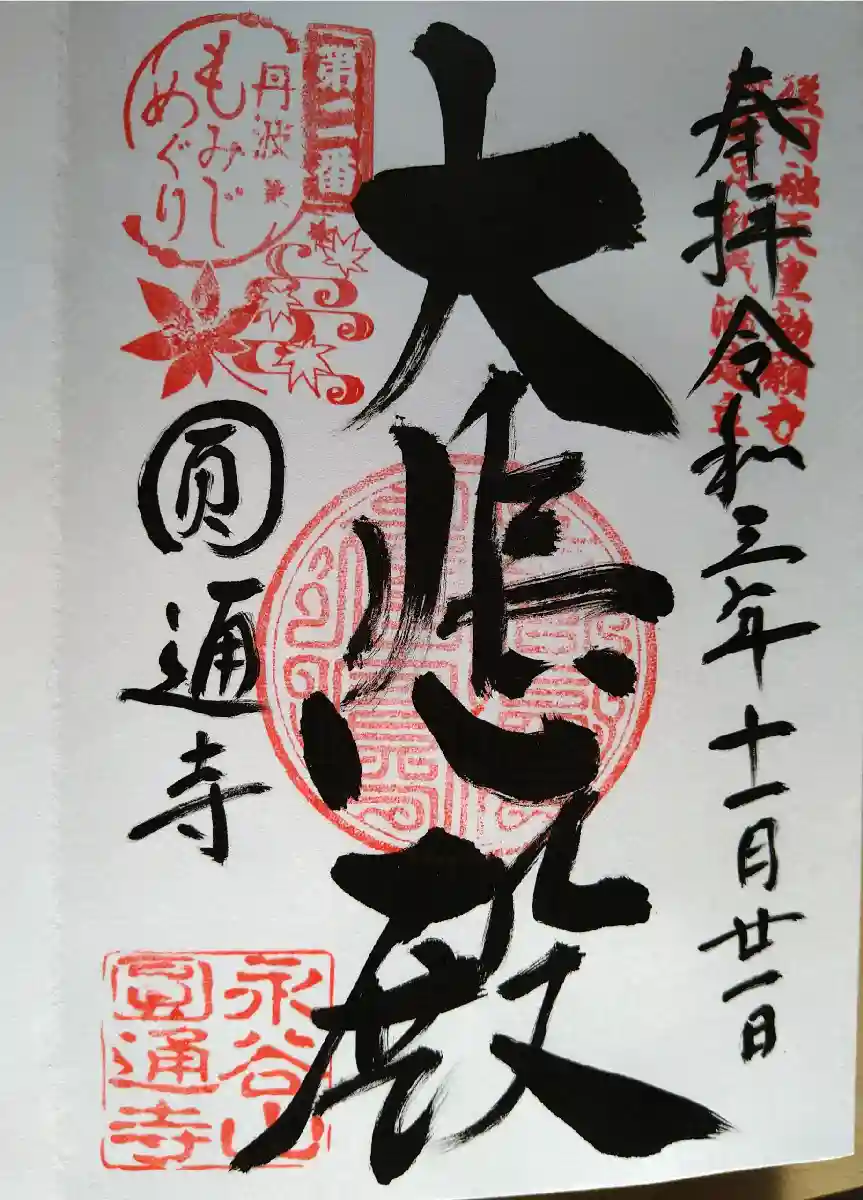 奉拝 令和三年十一月廿一日
後円融天皇勅願寺
大悲殿
第二番
丹波
もみじ
めぐり
圓通寺
永谷山
圓通寺